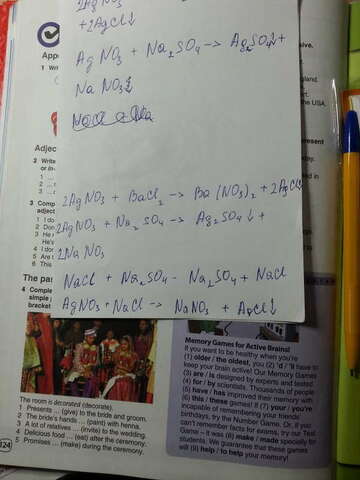 2AgNO3
+2AgCl↓
AgNO3 + Na2SO4 → Ag2SO4↓ +
NaNO3↓
2AgNO3 + BaCl2 → Ba(NO3)2 + 2AgCl↓
2AgNO3 + Na2SO4 → Ag2SO4↓ +
2NaNO3
NaCl + Na2SO4 - Na2SO4 + NaCl
AgNO3 + NaCl → NaNO3 + AgCl↓
1 Wri
ngland.
the USA.
Adjec
2 Write
or in-
1 ...
2 ...
3 Comp
adject
1 I do
2 Don
3 He
He's
4 I do
5 Are
6 This
present
The pa
4 Comple
simple
bracket
The room is decorated (decorate).
1 Presents ... (give) to the bride and groom.
2 The bride's hands ... (paint) with henna.
3 A lot of relatives ... (invite) to the wedding.
4 Delicious food ... (eat) after the ceremony.
5 Promises ... (make) during the ceremony.
124
Memory Games for Active Brains!
If you want to be healthy when you're
(1) older / the oldest, you (2) 'd / 'll have to
keep your brain active! Our Memory Games
(3) are / is designed by experts and tested
(4) for / by scientists. Thousands of people
(5) have / has improved their memory with
(6) this / these games! If (7) your / you're
incapable of remembering your friends'
birthdays, try the Number Game. Or, if you
can't remember facts for exams, try our Test
Game – it was (8) make / made specially for
students. We guarantee that these games
will (9) help / to help your memory!